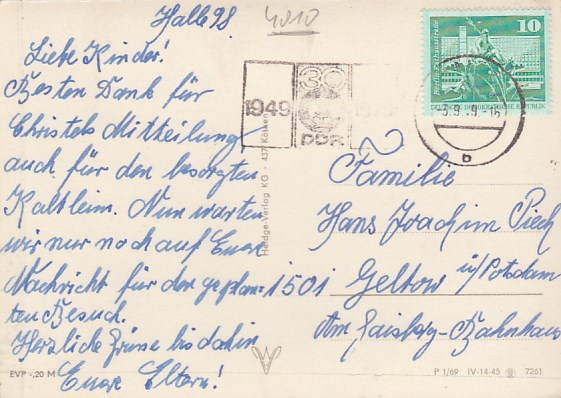 Halle 98
4010
Liebe Kinder!
Besten Dank für
Christels Mitteilung,
auch für den besorgten
Kaltleim. Nun warten
wir nur noch auf Eure
Nachricht für den geplan-
ten Besuch.
Herzliche Grüsse bis dahin
Eure Eltern!
EVP -,20 M
Verlag KG
437 Köthen
1949
30
DDR
10
DEUTSCHE DEMOKRATISCHE REPUBLIK
b
Familie
Hans Joachim Piech
1501 Geltow
ü/Potsdam
Am Bahnhaus
P 1/69 IV-14-45 7261